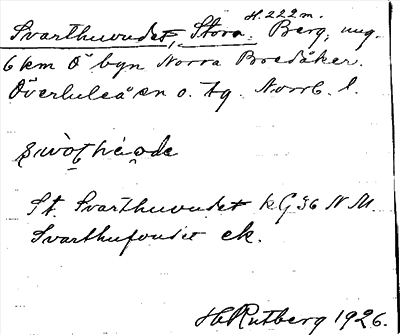 H. 222 m.
Svarthuvudet, Stora. Berg, ung.
6 km Ö byn Norra Bredåker.
Överluleå sn o. tg. Norrb. l.
St. Svarthuvudet kG 36 N M.
Svarthufvudet ek.
H Rutberg 1926.